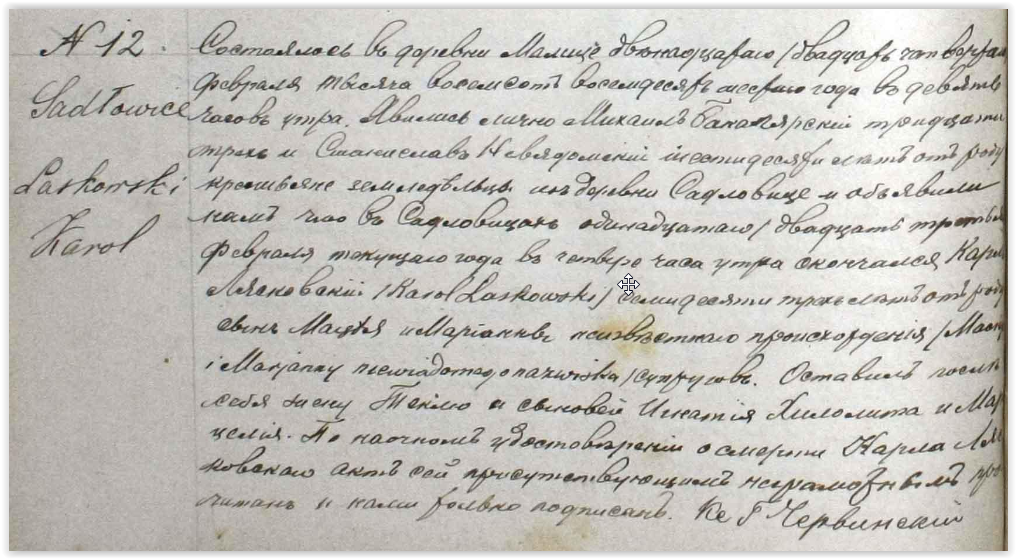 N 12.
Sadłowice
Laskowski
Karol
Состоялось въ деревни Малице двѣнадцатаго / двадцать четвертаго
февраля тысяча восемсотъ восемдесятъ шестаго года въ девять
часовъ утра. Явились лично Михаилъ Бакалярскій тридцати
трехъ и Станиславъ Невядомскій шестидесяти лѣтъ отъ роду
крестьяне земледѣльцы изъ деревни Садловице и объявили
намъ что въ Садловицахъ одинадцатаго / двадцать третьяго
февраля текущаго года въ четыре часа утра скончался Кароль
Лясковскій / Karol Laskowski / семидесяти трехъ лѣтъ отъ роду
сынъ Матѣя и Маріанны неизвѣстнаго происхожденія /
i Marjanny niewiadomego nazwiska / супруговъ. Оставилъ послѣ
себя жену Теклю и сыновей Игнатія Хиполита и Мар
целія. По наочномъ удостовѣреніи о смерти Карла Ляс
ковскаго актъ сей присутствующимъ неграмотнымъ про
читанъ и нами только подписанъ. Кс Г Червинскій